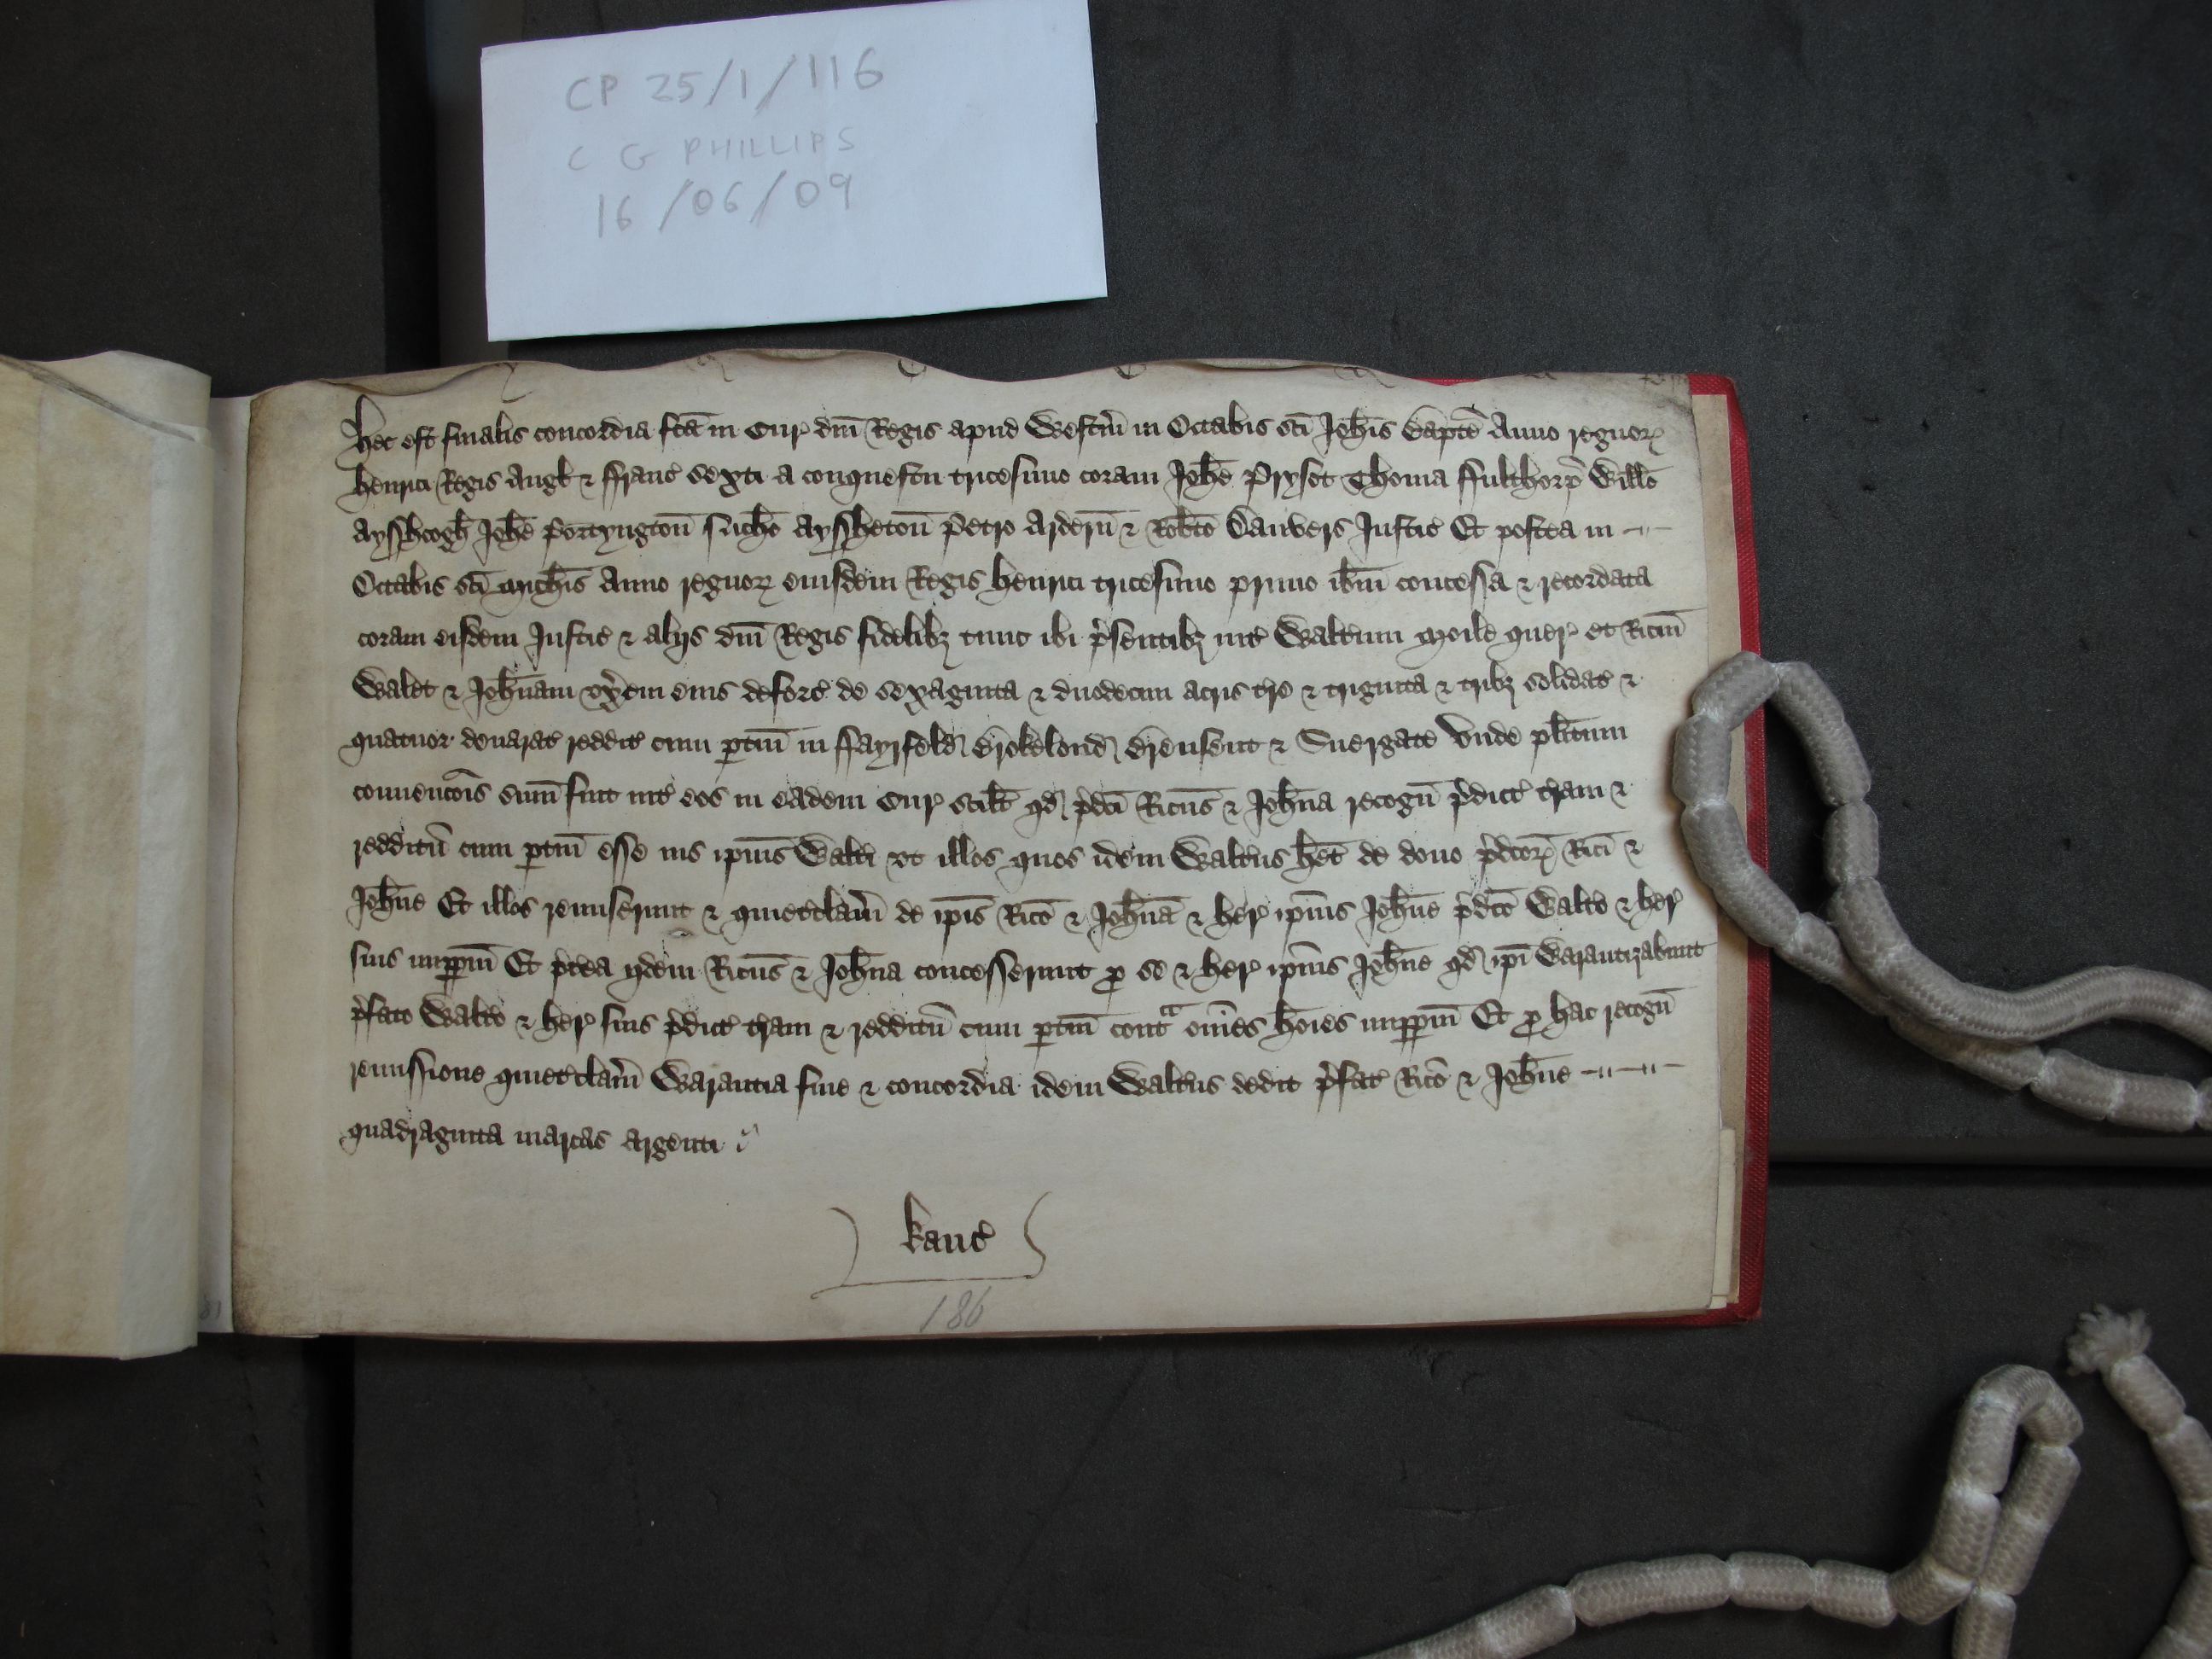 CP 25/1/116
C G PHILLIPS
16/06/09
Hec est finalis concordia fc̄a in Cur̛ dn̄i Regis apud Westm̄ in Octabis sc̄i Joh̄is Bapt̄e Anno regnoꝝ
Henrici Regis Angl̛ ⁊ ffranc̛ sexti a conquestu tricesimo coram Joh̄e Prysot Thoma ffulthorp̛ Will̄o
Ayssh̛cogh̛ Joh̄e Portyngton̄ Nich̄o Ayssheton̄ Petro Ardern̄ ⁊ Rob̄to Danvers Justic̛ Et postea in
Octabis sc̄i Mich̄is Anno regnoꝝ eiusdem Regis Henrici tricesimo primo ib̄m concessa ⁊ recordata
coram eisdem Justic̛ ⁊ alijs dn̄i Regis fidelibꝫ tunc ibi p̛sentibꝫ int̛ Walt̛um Moile quer̛ et Ric̄m
Walet ⁊ Joh̄nam vx̛em eius deforc̛ de sexaginta ⁊ duodecim acris t̛re ⁊ triginta ⁊ tribꝫ solidat̛ ⁊
quatuor denarat̛ reddit̛ cum ꝑtin̄ in ffayrfeld̛ Brokelond̛ Brensett ⁊ Snergate Vnde pl̄itum
convenc̄ois sum̄ fuit int̛ eos in eadem Cur̛ scil̄t qd̛ p̛dc̄i Ric̄us ⁊ Joh̄na recogn̄ p̛dict̛ t̛ram ⁊
redditū cum ꝑtin̄ esse ius ip̄ius Walt̛i vt illos quos idem Walt̛us h̄et de dono p̛dc̄oꝝ Ric̄i ⁊
Joh̄ne Et illos remiserunt ⁊ quietclam̄ de ip̄is Ric̄o ⁊ Joh̄na ⁊ her̛ ip̄ius Joh̄ne p̛dc̄o Walt̛o ⁊ her̛
suis imꝑpm̄ Et p̛t̛ea ijdem Ric̄us ⁊ Joh̄na concesserunt ꝓ se ⁊ her̛ ip̄ius Joh̄ne qd̛ ip̄i Warantizabunt
p̛fato Walt̛o ⁊ her̛ suis p̛dict̛ t̛ram ⁊ redditū cum ꝑtin̄ contᵃ om̄es ho̅i̅e̅s imꝑpm̄ Et ꝓ hac recogn̄
remissione quietclam̄ Warantia fine ⁊ concordia idem Walt̛us dedit p̛fat̛ Ric̄o ⁊ Joh̄ne
quadraginta marcas argenti
Kanc̛
186